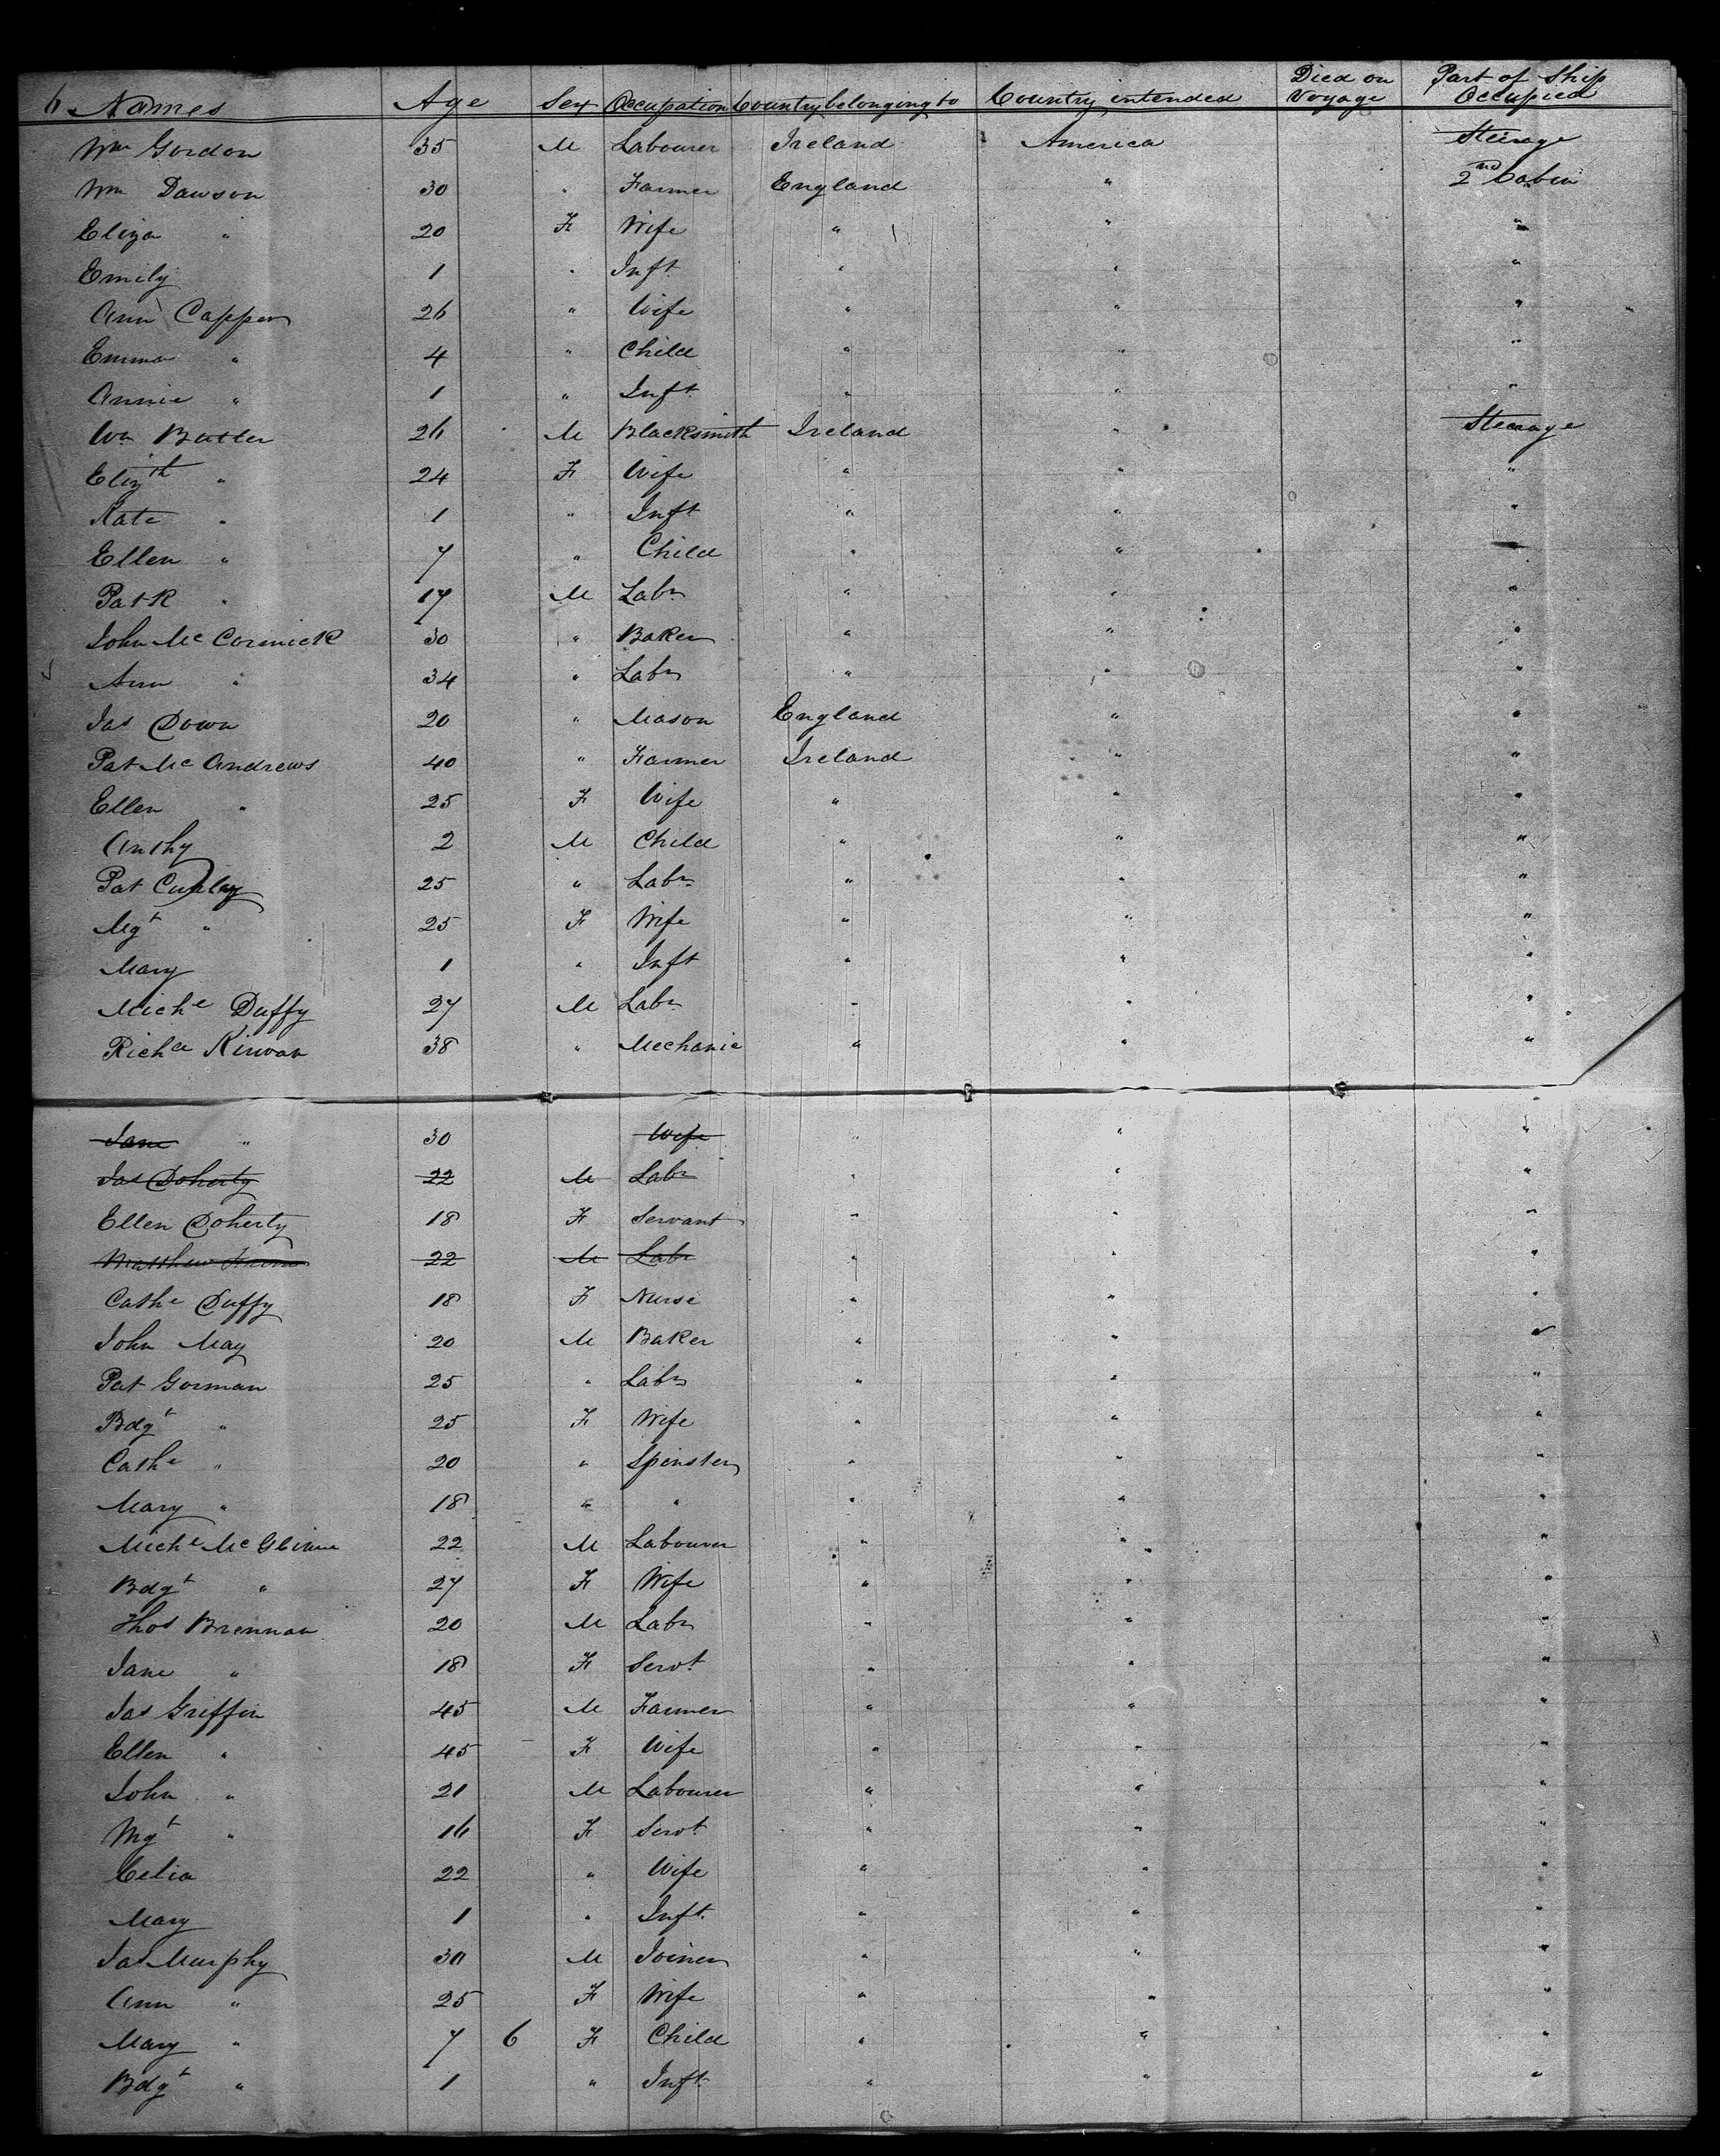 6 Names Age Sex Occupation Country belonging to Country intended Died on Voyage Part of Ship Occupied
Wm Gordon 35 M Labourer Ireland America Steerage
Wm Dawson 30 " Farmer England " 2nd Cabin
Eliza " 20 F Wife " " "
Emily 1 " Inft " " "
Ann Capper 26 " Wife " " "
Emma " 4 " Child " " "
Annie " 1 " Inft " " "
Wm Butler 26 M Blacksmith Ireland " Steerage
Elizth " 24 F Wife " " "
Kate " 1 " Inft " " "
Ellen " 7 " Child " " "
Patk " 17 M Labr " " "
John McCormick 30 " Baker " " "
Ann " 34 " Labr " " "
Jas Down 20 " Mason England " "
Pat McAndrews 40 " Farmer Ireland " "
Ellen " 25 F Wife " " "
Anthy 2 M Child " " "
Pat Curley 25 " Labr " " "
Mgt " 25 F Wife " " "
Mary 1 " Inft " " "
Miche Duffy 27 M Labr " " "
Richd Kirwan 38 " Mechanic " " "
Jane " 30 Wife " " "
Jas Doherty 22 M Labr " " "
Ellen Doherty 18 F Servant " " "
Matthew 22 M Labr " " "
Cathe Duffy 18 F Nurse " " "
John May 20 M Baker " " "
Pat Gorman 25 " Labr " " "
Bdgt " 25 F Wife " " "
Cathe " 20 " Spinster " " "
Mary " 18 " " " " "
Miche McGlinne 22 M Labourer " " "
Bdgt " 27 F Wife " " "
Thos Brennan 20 M Labr " " "
Jane " 18 F Servt " " "
Jas Griffin 45 M Farmer " " "
Ellen " 45 F Wife " " "
John " 21 M Labourer " " "
Mgt " 16 F Servt " " "
Celia 22 " Wife " " "
Mary 1 " Inft. " " "
Jas Murphy 30 M Joiner " " "
Ann " 25 F Wife " " "
Mary " 7 6 F Child " " "
Bdgt " 1 " Inft. " " "